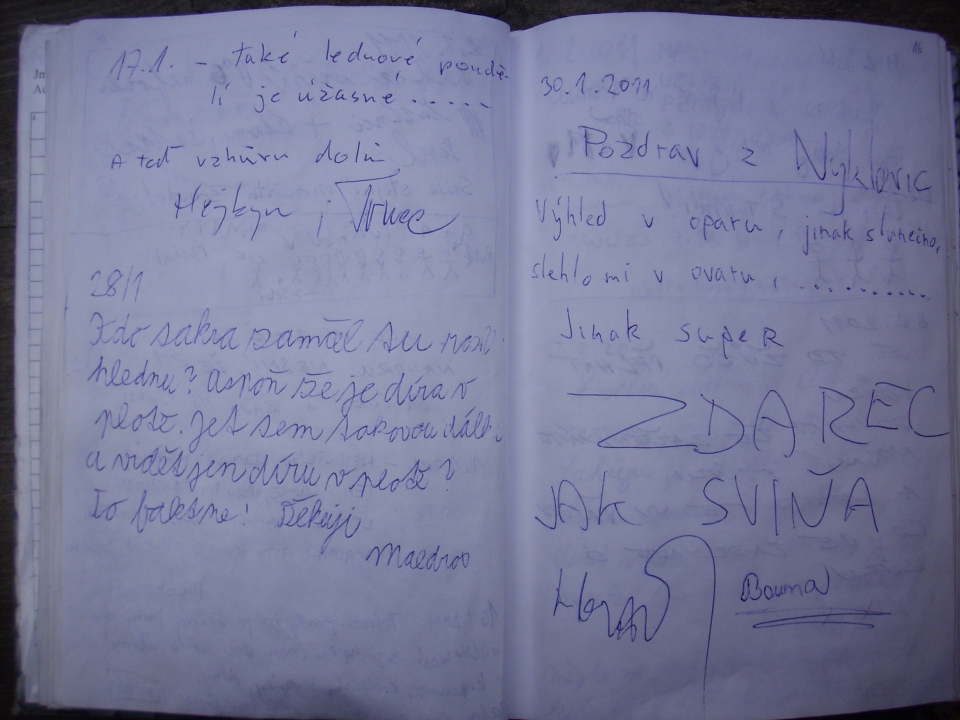 17.1. - také lednové pondě-
lí je úžasné .....
A teď vzhůru dolů
28/1
Kdo sakra zamčal tu rozh-
hlednu? Aspoň že je díra v
plotě. Jet sem takovou dálk
a vidět jen díru v plotě?
To fakt ne! Děkuji
Maedroo
16
30.1.2011
Pozdrav z Nyklovic
Výhled v oparu, jinak slunečno,
slehlo mi v ovaru, ..........
Jinak super
ZDAREC
JAK SVIŇA
Bouma